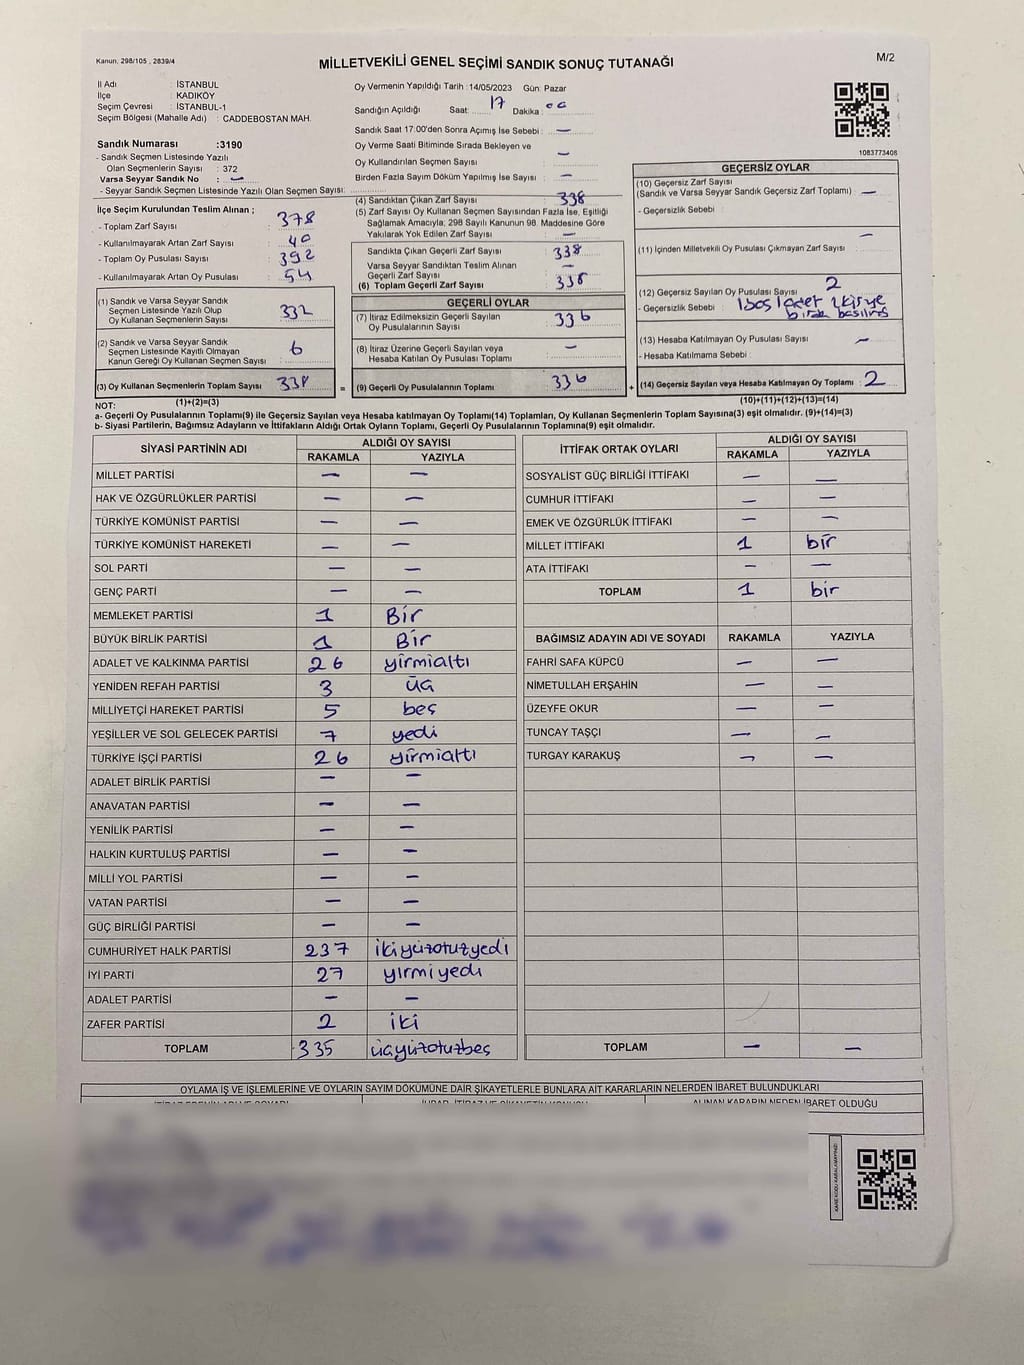 Kanun. 298/105 , 2839/4
MİLLETVEKİLİ GENEL SEÇİMİ SANDIK SONUÇ TUTANAĞI
M/2
İl Adı : İSTANBUL
İlçe : KADIKÖY
Seçim Çevresi : İSTANBUL-1
Seçim Bölgesi (Mahalle Adı) : CADDEBOSTAN MAH.
Sandık Numarası :3190
- Sandık Seçmen Listesinde Yazılı
Olan Seçmenlerin Sayısı : 372
Varsa Seyyar Sandık No : —
- Seyyar Sandık Seçmen Listesinde Yazılı Olan Seçmen Sayısı:
Oy Vermenin Yapıldığı Tarih : 14/05/2023 Gün: Pazar
Sandığın Açıldığı Saat: 17 Dakika : 00
Sandık Saat 17:00'den Sonra Açımış İse Sebebi : —
Oy Verme Saati Bitiminde Sırada Bekleyen ve
Oy Kullandırılan Seçmen Sayısı : —
Birden Fazla Sayım Döküm Yapılmış İse Sayısı : —
1083773408
İlçe Seçim Kurulundan Teslim Alınan ;
- Toplam Zarf Sayısı : 378
- Kullanılmayarak Artan Zarf Sayısı : 40
- Toplam Oy Pusulası Sayısı : 392
- Kullanılmayarak Artan Oy Pusulası : 54
(1) Sandık ve Varsa Seyyar Sandık
Seçmen Listesinde Yazılı Olup
Oy Kullanan Seçmenlerin Sayısı : 332
(2) Sandık ve Varsa Seyyar Sandık
Seçmen Listesinde Kayıtlı Olmayan
Kanun Gereği Oy Kullanan Seçmen Sayısı : 6
(3) Oy Kullanan Seçmenlerin Toplam Sayısı : 338
(1)+(2)=(3)
(4) Sandıktan Çıkan Zarf Sayısı : 338
(5) Zarf Sayısı Oy Kullanan Seçmen Sayısından Fazla İse, Eşitliği
Sağlamak Amacıyla; 298 Sayılı Kanunun 98. Maddesine Göre
Yakılarak Yok Edilen Zarf Sayısı : —
Sandıkta Çıkan Geçerli Zarf Sayısı : 338
Varsa Seyyar Sandıktan Teslim Alınan
Geçerli Zarf Sayısı : —
(6) Toplam Geçerli Zarf Sayısı : 338
GEÇERLİ OYLAR
(7) İtiraz Edilmeksizin Geçerli Sayılan
Oy Pusulalarının Sayısı : 336
(8) İtiraz Üzerine Geçerli Sayılan veya
Hesaba Katılan Oy Pusulası Toplamı : —
= (9) Geçerli Oy Pusulalarının Toplamı : 336
GEÇERSİZ OYLAR
(10) Geçersiz Zarf Sayısı
(Sandık ve Varsa Seyyar Sandık Geçersiz Zarf Toplamı) : —
- Geçersizlik Sebebi : —
(11) İçinden Milletvekili Oy Pusulası Çıkmayan Zarf Sayısı : —
(12) Geçersiz Sayılan Oy Pusulası Sayısı : 2
- Geçersizlik Sebebi :
(13) Hesaba Katılmayan Oy Pusulası Sayısı : —
- Hesaba Katılmama Sebebi :
+ (14) Geçersiz Sayılan veya Hesaba Katılmayan Oy Toplamı : 2
(10)+(11)+(12)+(13)=(14)
NOT:
a- Geçerli Oy Pusulalarının Toplamı(9) ile Geçersiz Sayılan veya Hesaba katılmayan Oy Toplamı(14) Toplamları, Oy Kullanan Seçmenlerin Toplam Sayısına(3) eşit olmalıdır. (9)+(14)=(3)
b- Siyasi Partilerin, Bağımsız Adayların ve İttifakların Aldığı Ortak Oyların Toplamı, Geçerli Oy Pusulalarının Toplamına(9) eşit olmalıdır.
SİYASİ PARTİNİN ADI ALDIĞI OY SAYISI
RAKAMLA YAZIYLA
MİLLET PARTİSİ — —
HAK VE ÖZGÜRLÜKLER PARTİSİ — —
TÜRKİYE KOMÜNİST PARTİSİ — —
TÜRKİYE KOMÜNİST HAREKETİ — —
SOL PARTİ — —
GENÇ PARTİ — —
MEMLEKET PARTİSİ 1 Bir
BÜYÜK BİRLİK PARTİSİ 1 Bir
ADALET VE KALKINMA PARTİSİ 26 yirmialtı
YENİDEN REFAH PARTİSİ 3 üç
MİLLİYETÇİ HAREKET PARTİSİ 5 beş
YEŞİLLER VE SOL GELECEK PARTİSİ 7 yedi
TÜRKİYE İŞÇİ PARTİSİ 26 yirmialtı
ADALET BİRLİK PARTİSİ — —
ANAVATAN PARTİSİ — —
YENİLİK PARTİSİ — —
HALKIN KURTULUŞ PARTİSİ — —
MİLLİ YOL PARTİSİ — —
VATAN PARTİSİ — —
GÜÇ BİRLİĞİ PARTİSİ — —
CUMHURİYET HALK PARTİSİ 237 ikiyüzotuzyedi
İYİ PARTİ 27 yirmiyedi
ADALET PARTİSİ — —
ZAFER PARTİSİ 2 iki
TOPLAM 335 üçyüzotuzbeş
İTTİFAK ORTAK OYLARI ALDIĞI OY SAYISI
RAKAMLA YAZIYLA
SOSYALİST GÜÇ BİRLİĞİ İTTİFAKI — —
CUMHUR İTTİFAKI — —
EMEK VE ÖZGÜRLÜK İTTİFAKI — —
MİLLET İTTİFAKI 1 bir
ATA İTTİFAKI — —
TOPLAM 1 bir
BAĞIMSIZ ADAYIN ADI VE SOYADI RAKAMLA YAZIYLA
FAHRİ SAFA KÜPCÜ — —
NİMETULLAH ERŞAHİN — —
ÜZEYFE OKUR — —
TUNCAY TAŞÇI — —
TURGAY KARAKUŞ — —
TOPLAM — —
OYLAMA İŞ VE İŞLEMLERİNE VE OYLARIN SAYIM DÖKÜMÜNE DAİR ŞİKAYETLERLE BUNLARA AİT KARARLARIN NELERDEN İBARET BULUNDUKLARI
ALINAN KARARIN NEDEN İBARET OLDUĞU